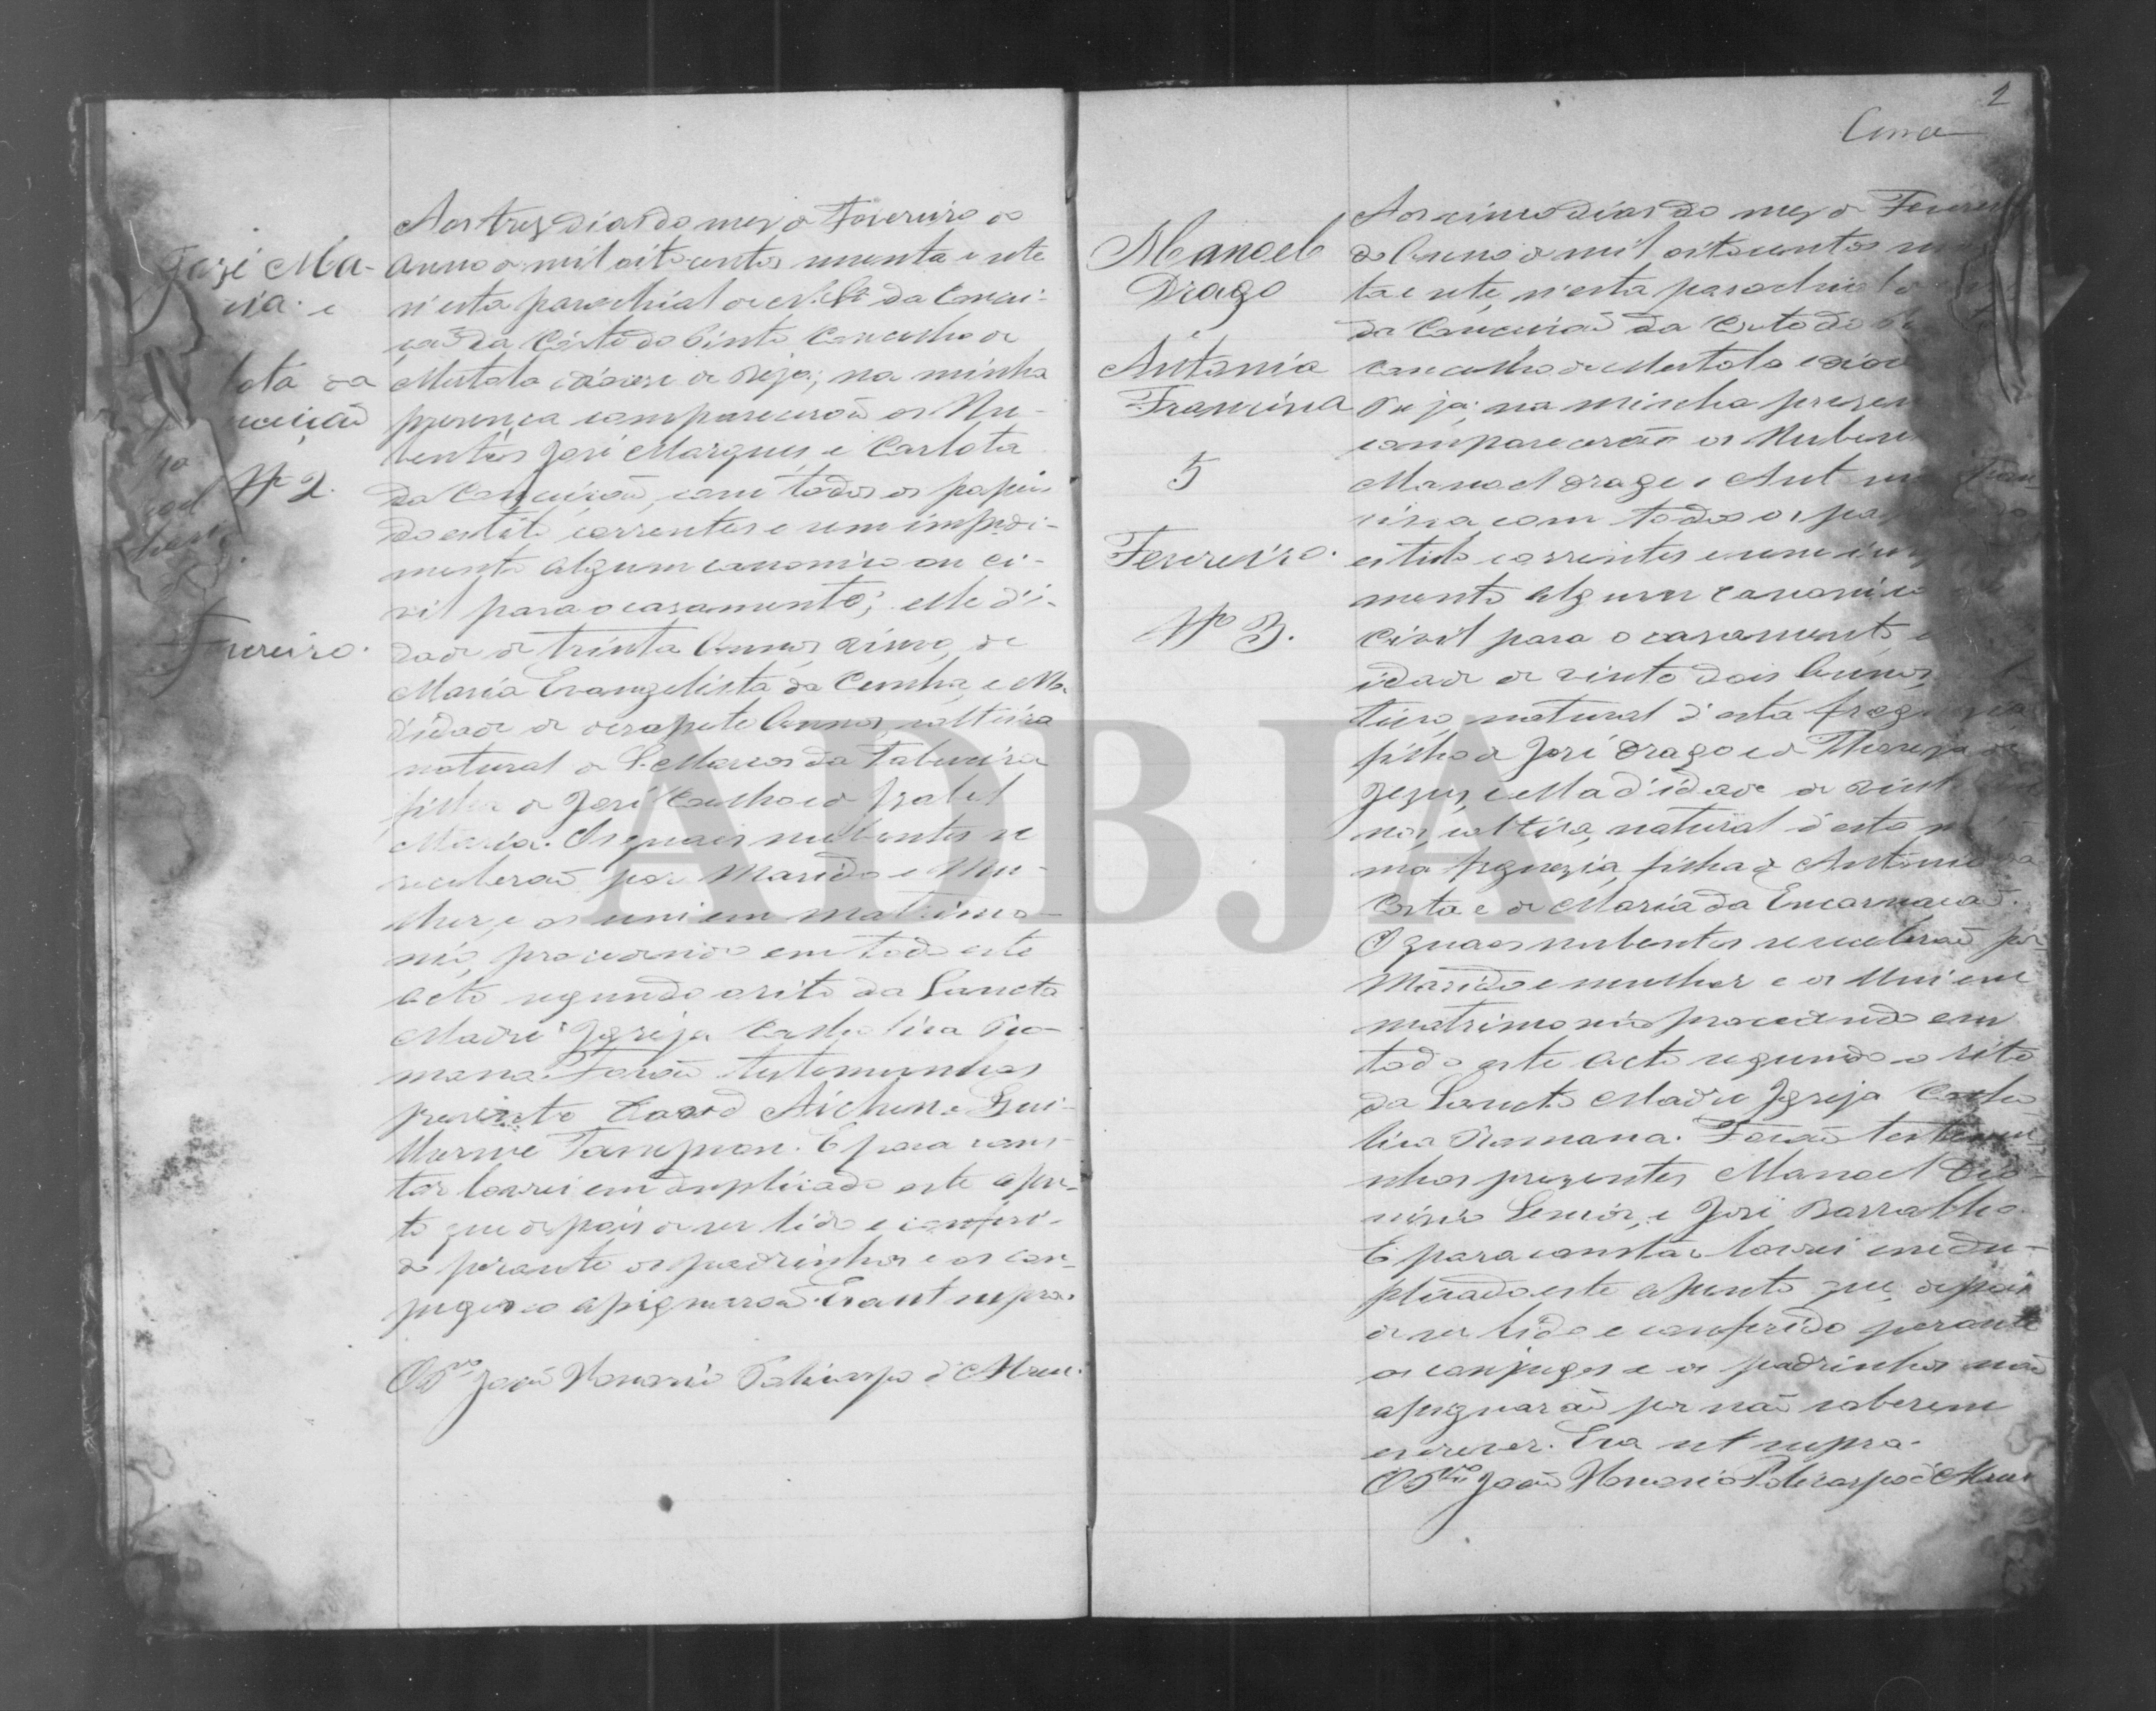 José Ma-
ria e
lota da
ceição
Nº 2.
Fevereiro.
Aos tres dias do mez de Fevereiro do
Anno de mil oito centos noventa e sete
n'esta parochial de N. Srª da Concei-
ção da Côrte do Pinto Concelho de
Mertola diocese de Beja; na minha
presença comparecerão os Nu-
bentes José Marques e Carlota
da Conceição, com todos os papeis
do estilo correntes e sem impedi-
mento algum canonico ou ci-
vil para o casamento; elle d'i-
dade de trinta Annos
Maria Evangelista da Cunha, e Ella
d'idade de desasete Annos, solteira
natural de S. Marcos da Tabueira
filha de José Coelho e de Izabel
Maria. Os quais nubentes se
receberão por Marido e Mu-
lher, e os uni em matrimo-
nio, procedendo em todo este
acto segundo o rito da Sancta
Madre Igreja Catholica Ro-
mana. Forão testemunhas
presente David Gui-
lherme. E para cons-
tar lavrei em duplicado este assen-
to que depois de ser lido e conferi-
do perante os padrinhos e os con-
juges o assignarão. Era ut supra.
O P.ro João Honorio Policarpo d'
2
Manoel
Drago
e
Antonia
Francisca
5
Fevereiro.
Nº 3.
Aos cinco dias do mez de Fevere
do Anno de mil oitocentos
ta e sete, n'esta parochial
da Conceição da Corte do
concelho de Mertola e dioc
Beja; na minha prezen
comparecerão os Nuben
Manoel Drago e Ant Fran-
cisca com todos os pa
estilo correntes e sem im
mento algum canonico
Civil para o casamento, e
idade de vinte dois Annos,
teiro, natural d'esta freguezia
filho de José Drago e de Thereza de
Jezus, e Ella d'idade de vint
nos, solteira, natural d'esta
ma freguezia, filha de Antonio da
Costa e de Maria da Encarnação.
Os quaes nubentes se receberão por
Marido e mulher e os Uni em
matrimonio procedendo em
todo este acto segundo o rito
da Sancta Madre Igreja Catho-
lica Romana. Forão testemu-
nhas prezentes Manoel Dio-
nisio e José Barralho.
E para constar lavrei em du-
plicado este assento que, depois
de ser lido e conferido perante
os conjuges e os padrinhos não
assignarão por não saberem
escrever. Era ut supra.
O P.ro João Honorio Policarpo d'
ADBJA